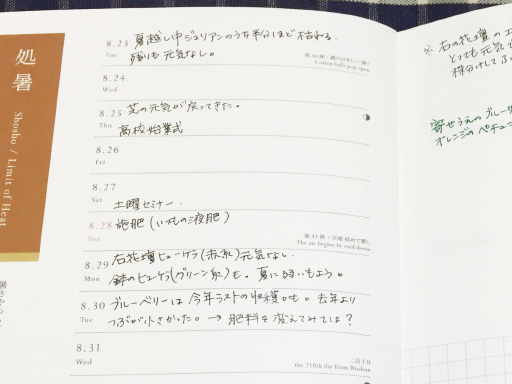 処暑
Shosho / Limit of Heat
8.23 夏越し中ジュリアンのうち半分ほど枯れる。
Tue 残りも元気なし。
Cotton balls pop open
8.24
Wed
8.25 芝の元気が戻ってきた。
Thu 高校始業式
8.26
Fri
8.27
Sat 土曜セミナー.
8.28 施肥(いつもの液肥)
Sun
The air begins to cool down
8.29 右花壇ヒューケラ(赤系)元気ない.
Mon 鉢のヒューケラ(グリーン系)も。夏に弱いもよう。
8.30 ブルーベリーは今年ラストの収穫かも。去年より
Tue つぶが小さかった。→ 肥料を変えてみては?
8.31
Wed
二百十日
the 210th day from Risshun
※ 右の花壇の
とっても元気で
株分けして
寄せうえのブルー
オレンジのペチュニ